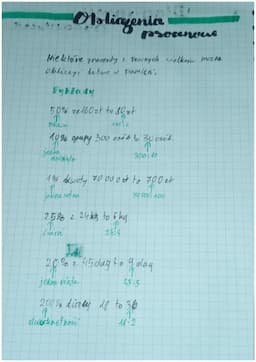 Obliczenia
procentowe
Niektóre procenty z pewnych wielkości można
obliczyć łatwo w pamięci.
Przykłady
50% z 160 zł to 80 zł
połowa
10% grupy 300 osób to 30 osób.
jedna
dziesiąta 300:10
1% kwoty 70 000 zł to 700 zł
jedna setna 70 000:100
25% z 24 kg to 6 kg
24:4
20% z 45 dag to 9 dag
jedna piąta 45:5
200% liczby 18 to 36
dwukrotność 18·2